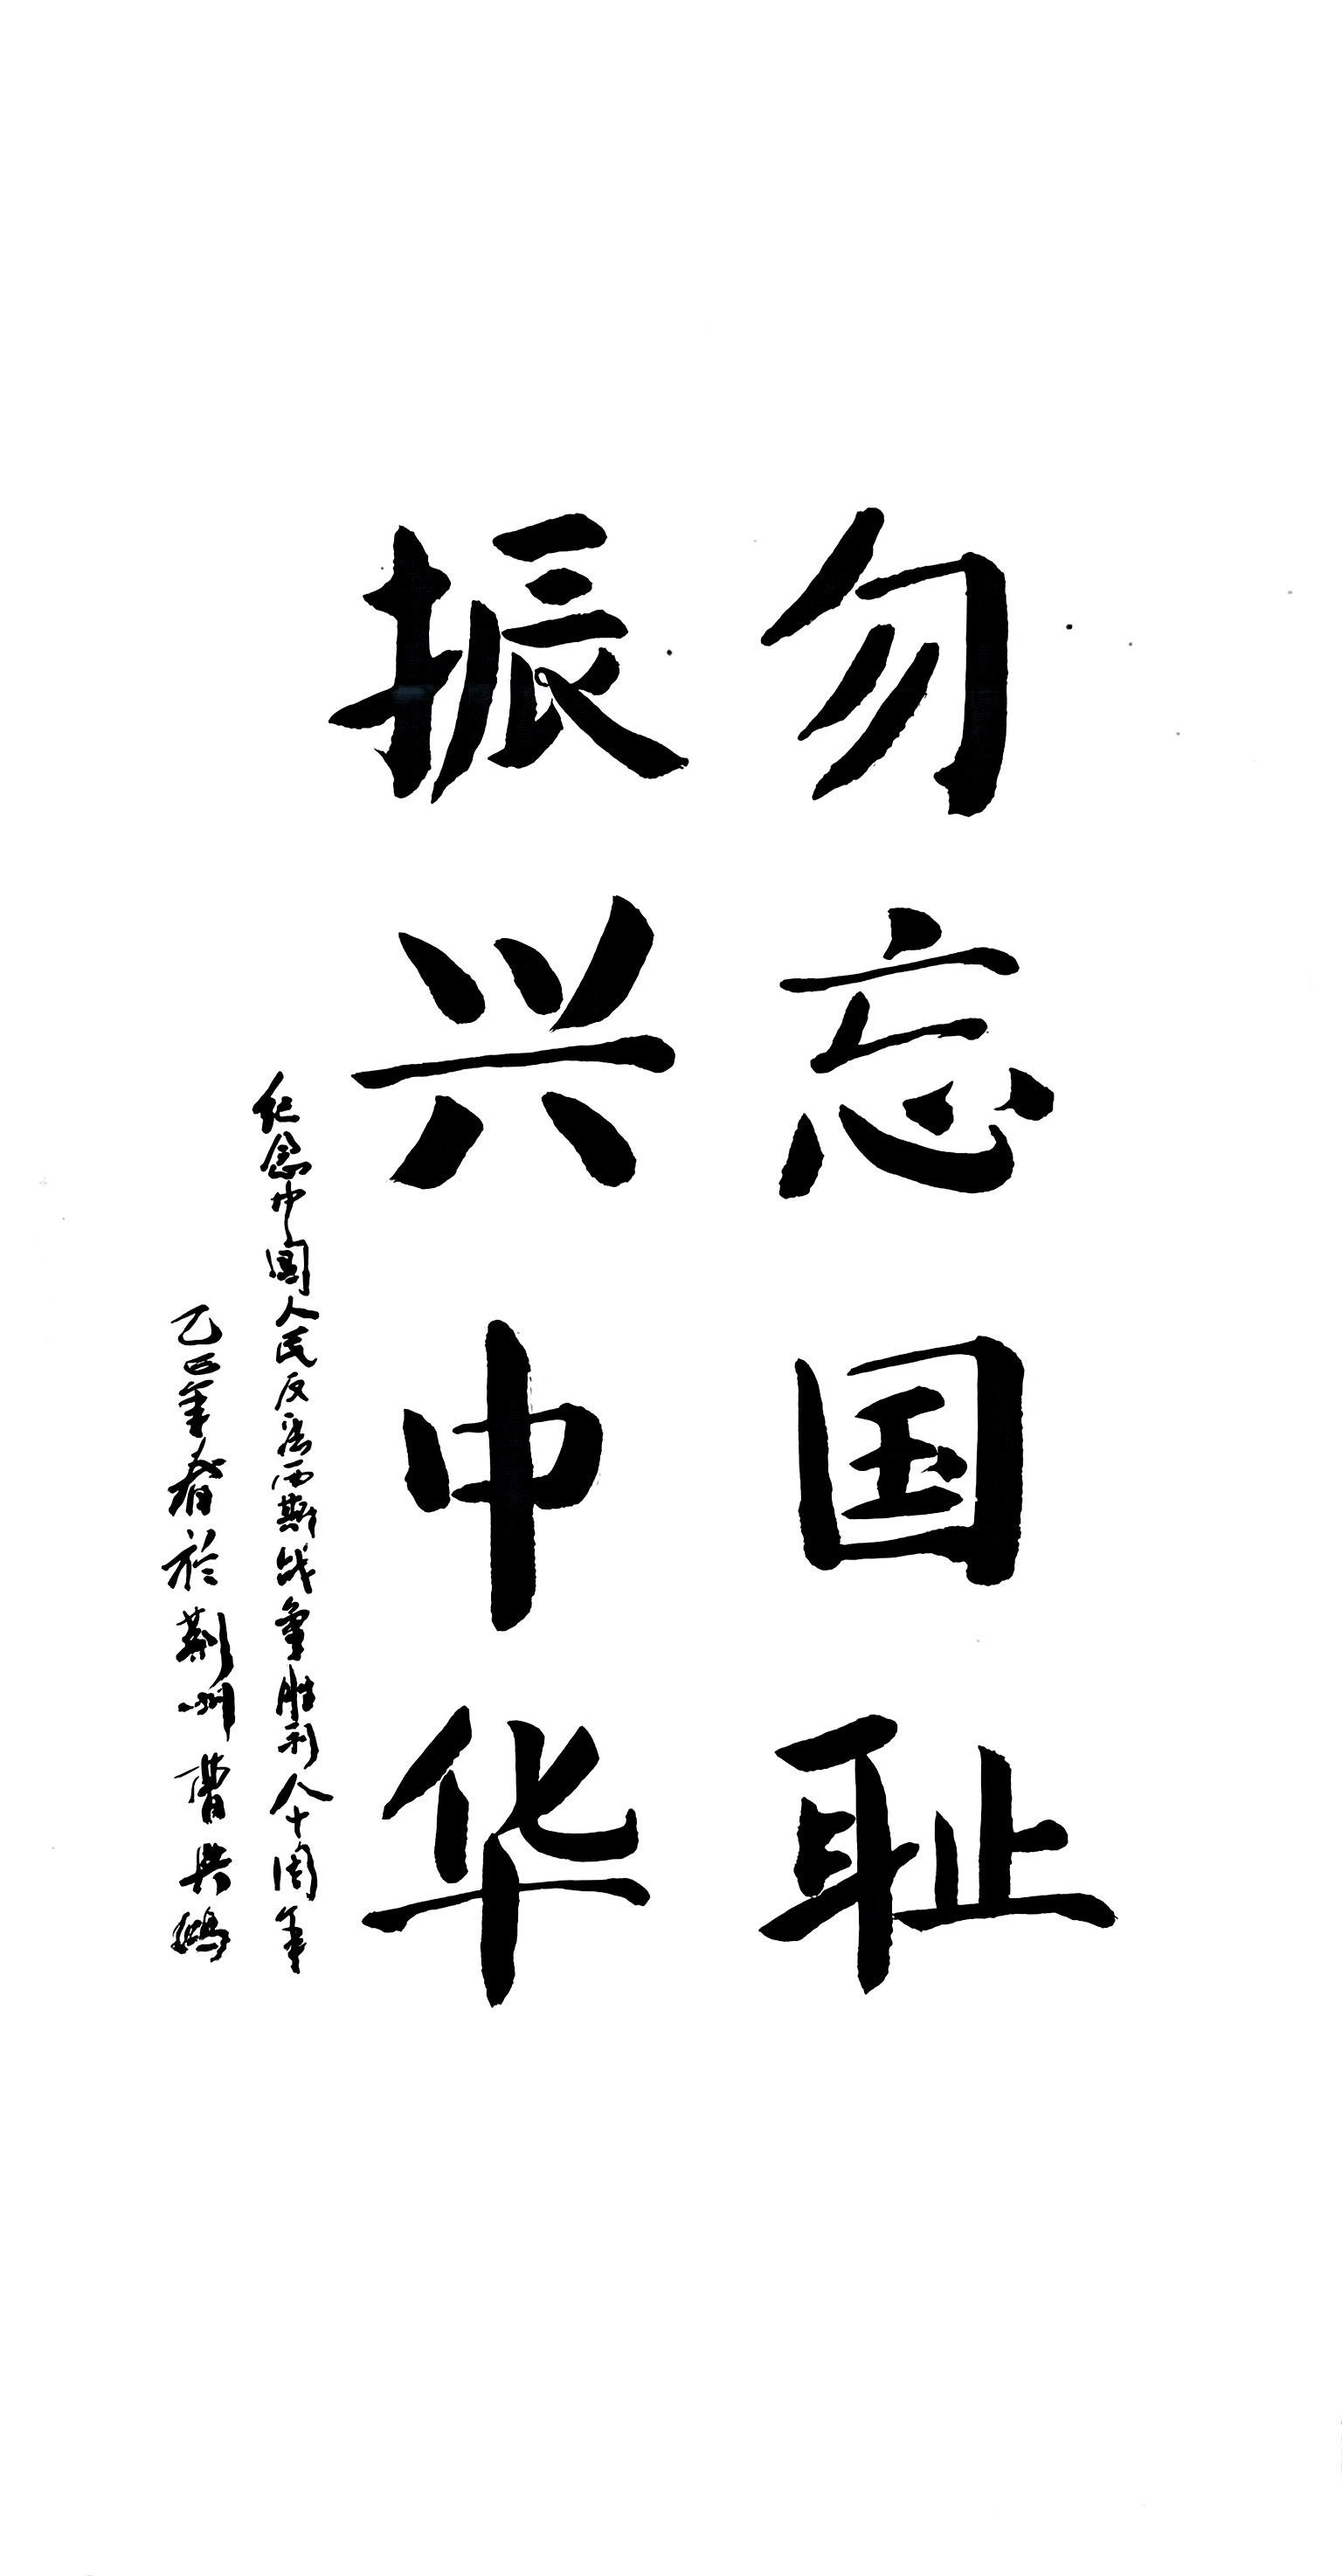 勿忘国耻
振兴中华
纪念中国人民反法西斯战争胜利八十周年
乙巳年春於荆州曹兴鸿